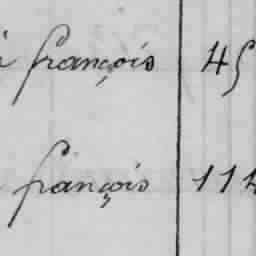 françois 45
françois 114